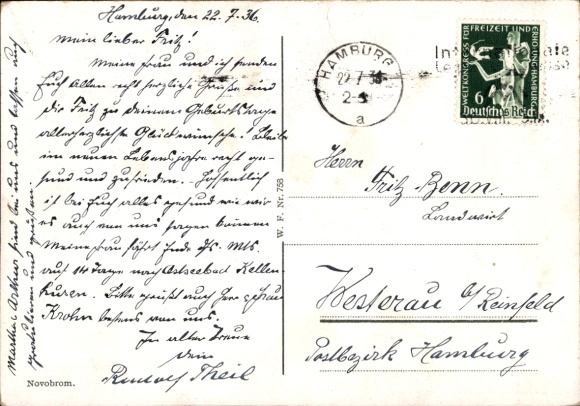 Hamburg, den 22.7.36.
Mein lieber Fritz!
Meine Frau und ich senden
Euch Allen recht herzliche Grüße und
dir Fritz zu deinem Geburtstage
allerherzlichste Glückwünsche! Bleibe
im neuen Lebensjahre recht ge-
sund und zufrieden. Hoffentlich
ist bei Euch alles gesund wie wir
es auch von uns sagen können
Meine Frau fährt Ende ds. Mts.
auf 14 Tage nach Ostseebad Kellen-
husen. Bitte grüßt auch Herr & Frau
Krohn bestens von uns.
In alter Treue
dein
Rudolf Theil
Martha & Arthur sind bei uns und lassen auch
gratulieren und grüßen.
Novobrom.
W. F. Nr. 758
HAMBURG
22.7.36
a
WELTKONGRESS FÜR FREIZEIT UND ERHOLUNG HAMBURG
6
Deutsches Reich
Herrn
Fritz Benn.
Landwirt
Westerau b/Reinfeld
Postbezirk Hamburg